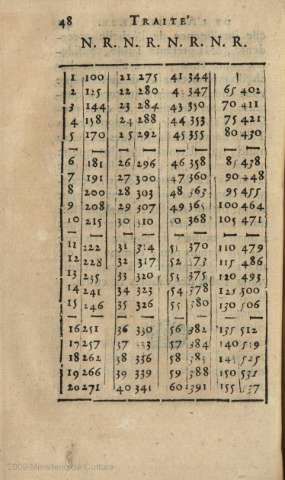 48 TRAITE'
N. R. N. R. N. R. N. R.
1 100 21 275 41 344
2 125 22 280 42 347 65 402
3 144 23 284 43 350 70 411
4 158 24 288 44 353 75 421
5 170 25 292 45 355 80 430
6 181 26 296 46 358 85 438
7 191 27 300 47 360 90 448
8 200 28 303 48 363 95 455
9 208 29 307 49 365 100 464
10 215 30 310 50 368 105 471
11 222 31 314 51 370 110 479
12 228 32 317 52 373 115 486
13 235 33 320 53 375 120 493
14 241 34 323 54 378 125 500
15 246 35 326 55 380 130 506
16 251 36 330 56 382 135 512
17 257 37 333 57 384 140 519
18 262 38 336 58 386 145 525
19 266 39 339 59 388 150 531
20 271 40 341 60 391 155 537
2009 Ministerio de Cultura